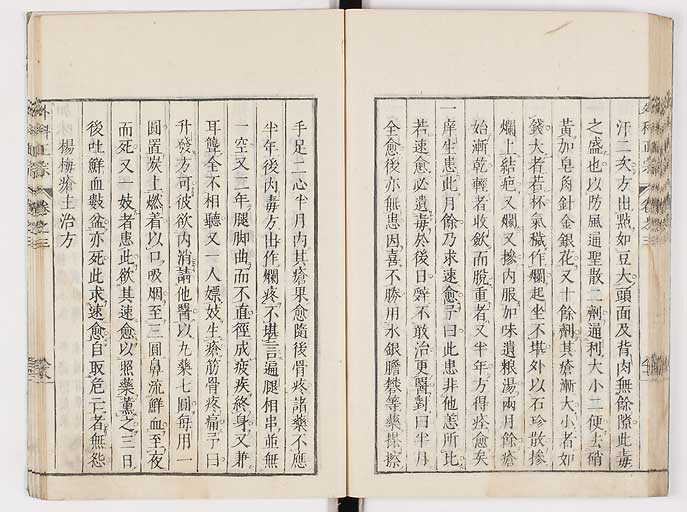 汗二次方出點如豆大頭面及背肉無餘隙此毒
之盛也以防風通聖散二劑通利大小二便去硝
黃加皂角針金銀花又十餘劑其瘡漸大小者如
錢大者若杯氣穢作爛起坐不堪外以石珍散摻
爛上結疤又爛又摻內服加味遺糧湯兩月餘瘡
始漸乾輕者收歛而脫重者又半年方得痊愈矣
一庠生患此月餘乃求速愈予曰此患非他恙所比
若速愈必遺毒於後日辭不敢治更醫對曰半月
全愈後亦無患因喜不勝用水銀膽礬等藥搽擦
手足二心半月內其瘡果愈隨後骨疼諸藥不應
半年後內毒方出作爛疼不堪言遍腿相串並無
一空又二年腿脚曲而不直徑成疲疾終身又兼
耳聾全不相聽又一人嫖妓生瘡筋骨疼痛予曰
升發方可彼欲內消請他醫以九藥七圓每用一
圓置炭上燃着以口吸烟至三圓鼻流鮮血至夜
而死又一妓者患此欲其速愈以照藥薰之三日
後吐鮮血數盆亦死此求速愈自取危亡者無怨
楊梅瘡主治方
外科正宗
卷之三
外科正宗
卷之三